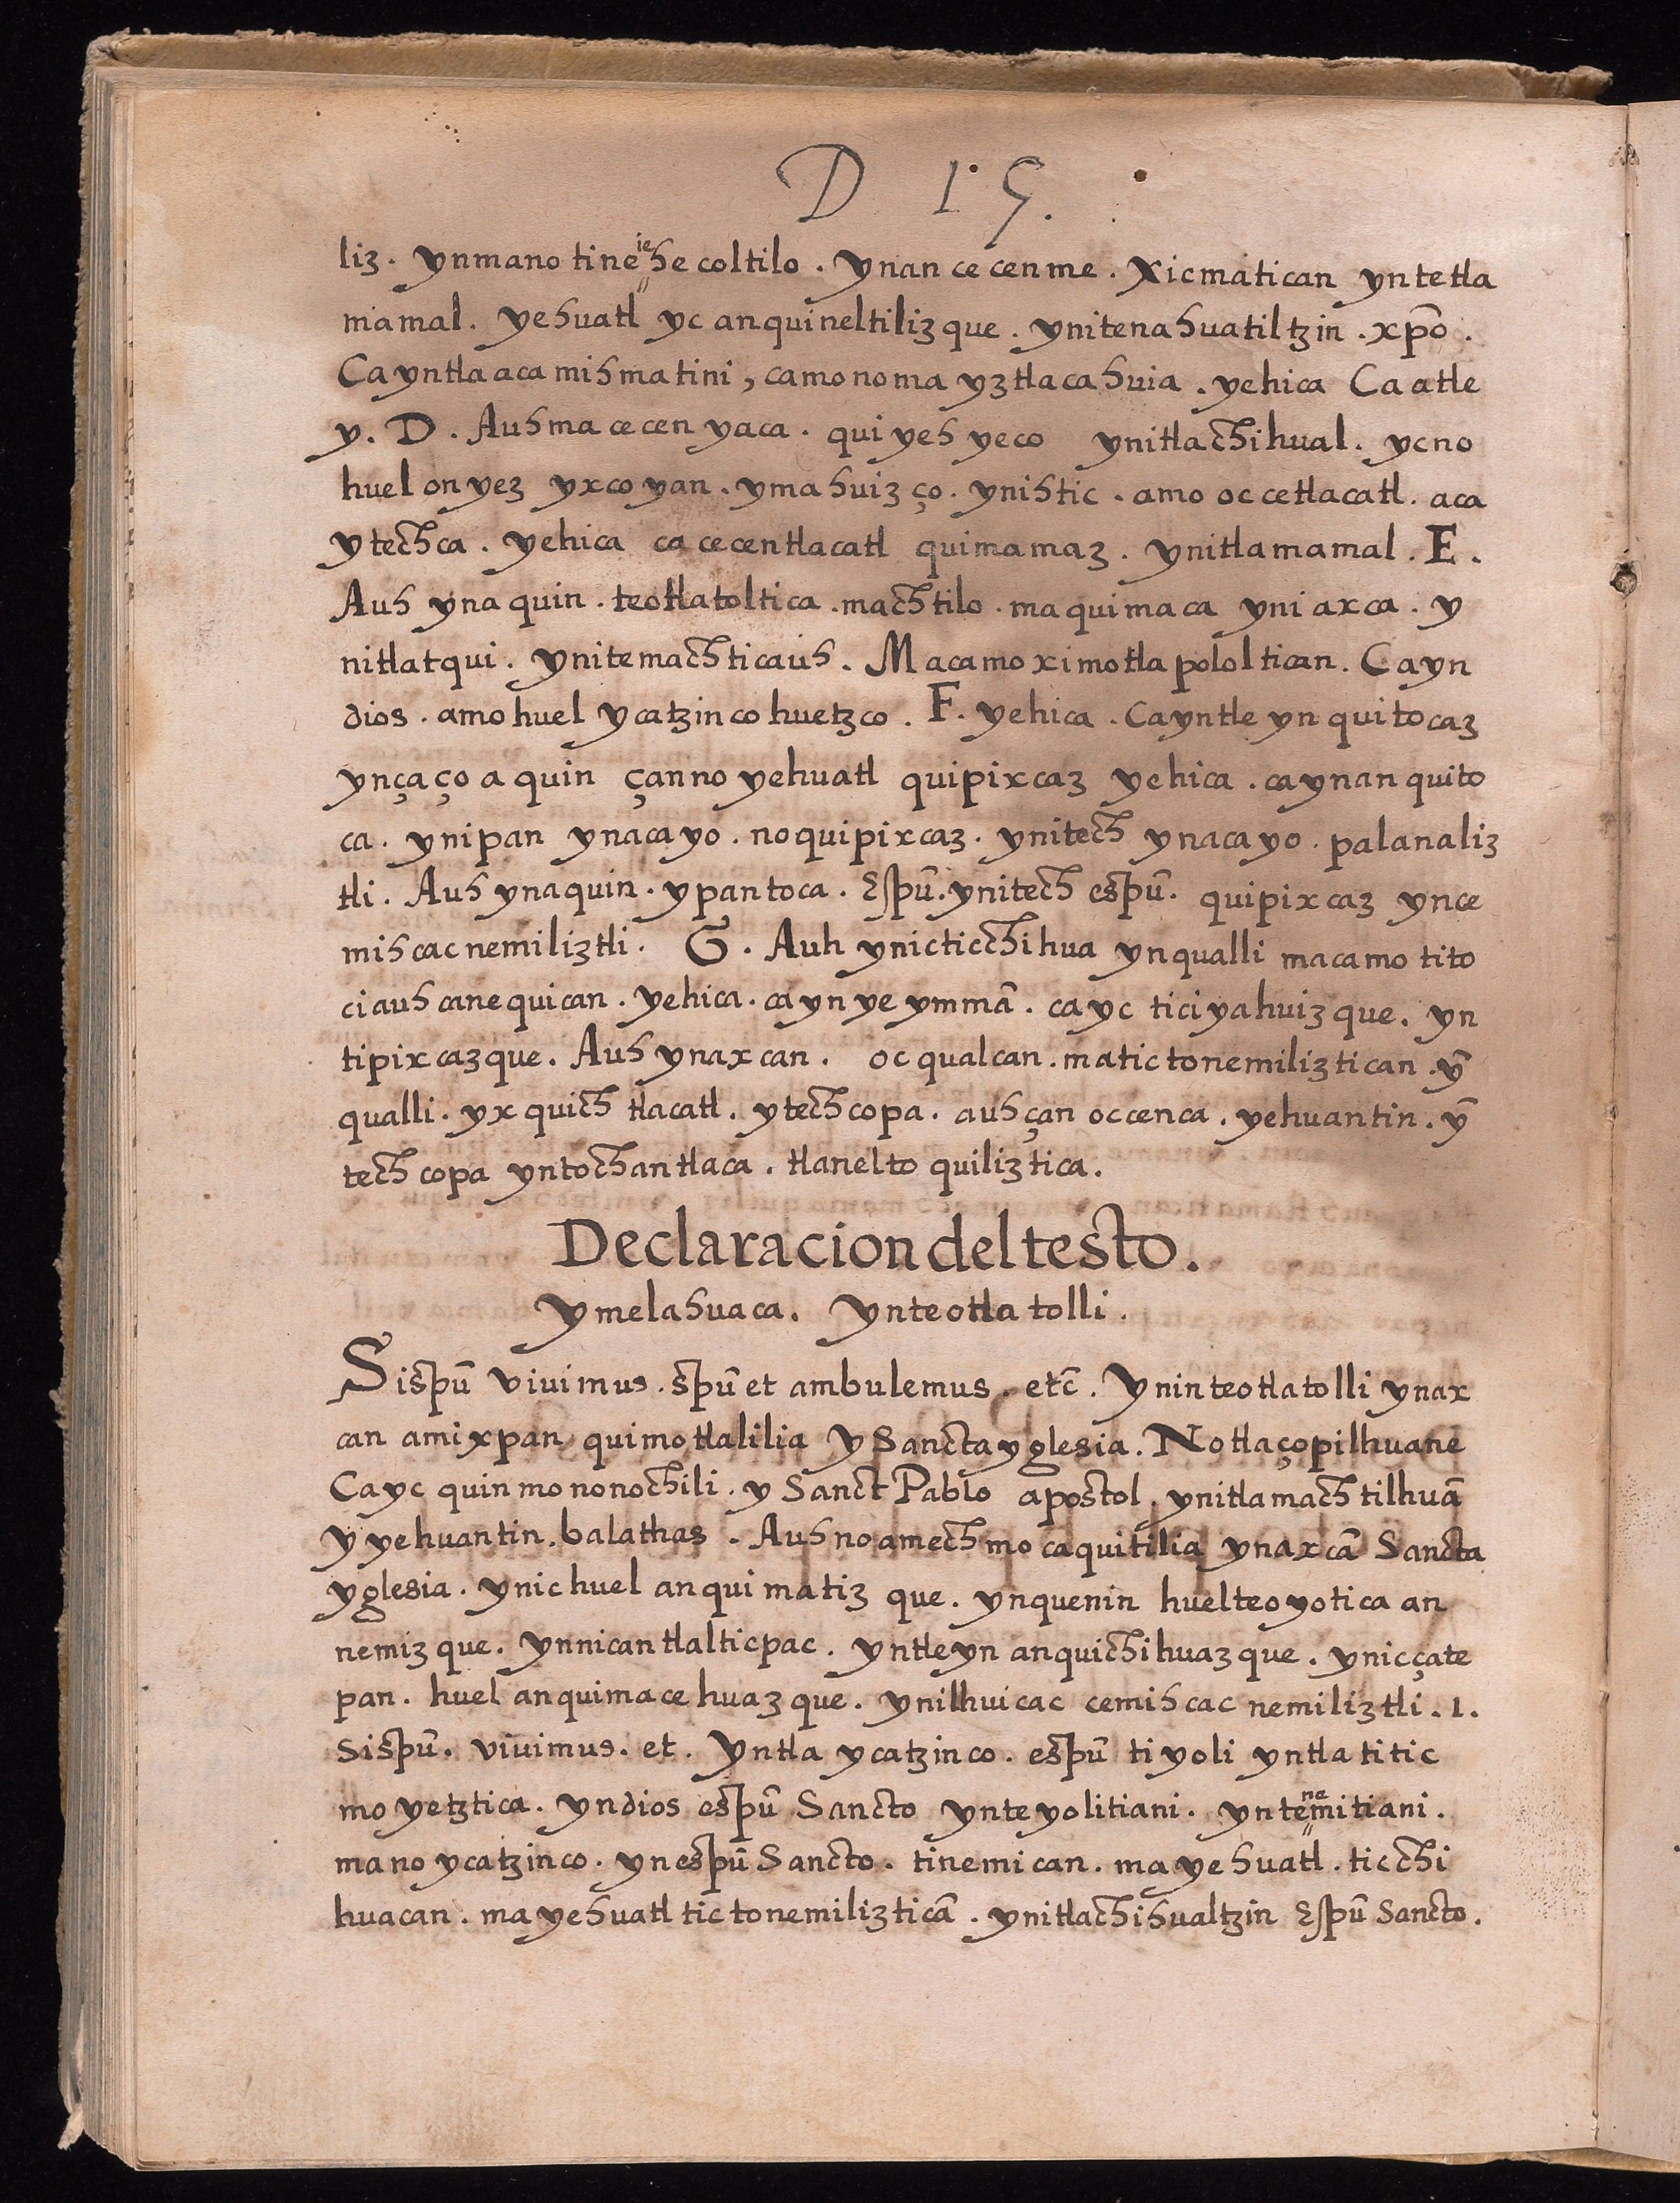 D 15.
liz. ynmano tine ie hecoltilo. ynan cecenme. xicmatican yntetla
mamal. yehuatl yc anquineltilizque. ynitenahuatiltzin. xp̄o.
Ca yntla aca mihmatini, camonoma yztlacahuia. yehica Ca atle
y. D. Auh ma cecen yaca. quiyehyeco ynitlachihual. ycno
huel onyez yxcoyan. ymahuizço. ynihtic. amo occetlacatl. aca
ytechca. yehica ca cecentlacatl quimamaz. ynitlamamal. E.
Auh ynaquin. teotlatoltica. machtilo. maquimaca yniaxca. y
nitlatqui. ynitemachticauh. Macamo ximotlapololtican. Cayn
dios. amo huel ycatzinco huetzco. F. yehica. Cayntleyn quitocaz
ynçaço aquin çanno yehuatl quipixcaz yehica. caynanquito
ca. ynipan ynacayo. noquipixcaz. ynitech ynacayo. palanaliz
tli. Auh ynaquin. ypantoca. Espū. ynitech espū. quipixcaz ynce
mihcacnemiliztli. G. Auh ynicticchihua ynqualli macamo tito
ciauhcanequican. yehica. caynye ymmā. cayc ticiyahuizque. yn
tipixcazque. Auh ynaxcan. oc qualcan. matictonemiliztican. ȳ
qualli. yxquich tlacatl. ytechcopa. auhçan occenca. yehuantin. ȳ
techcopa yntochantlaca. tlaneltoquiliztica.
Declaracion del testo.
ymelahuaca. ynteotlatolli.
Sispū vivimus. spū et ambulemus. etc̄. yninteotlatolli ynax
can amixpan quimotlalilia y Sancta yglesia. Notlaçopilhuane
Cayc quinmononochili. y Sanct Pablo apostol. ynitlamachtilhuā
y yehuantin. balathas. Auh noamechmocaquitilia ynaxcā Sancta
yglesia. ynic huel anquimatizque. ynquenin huelteoyotica an
nemizque. ynnican tlalticpac. yntleyn anquichihuazque. ynicçate
pan. huel anquimacehuazque. ynilhuicac cemihcac nemiliztli. 1.
Sispū. vivimus. et. yntla ycatzinco. espū tiyoli yntla titic
moyetztica. yndios espū Sancto ynteyolitiani. ynte ne mitiani.
mano ycatzinco. ynespū Sancto. tinemican. mayehuatl. ticchi
huacan. mayehuatl tictonemilizticā. ynitlachihualtzin Espū Sancto.